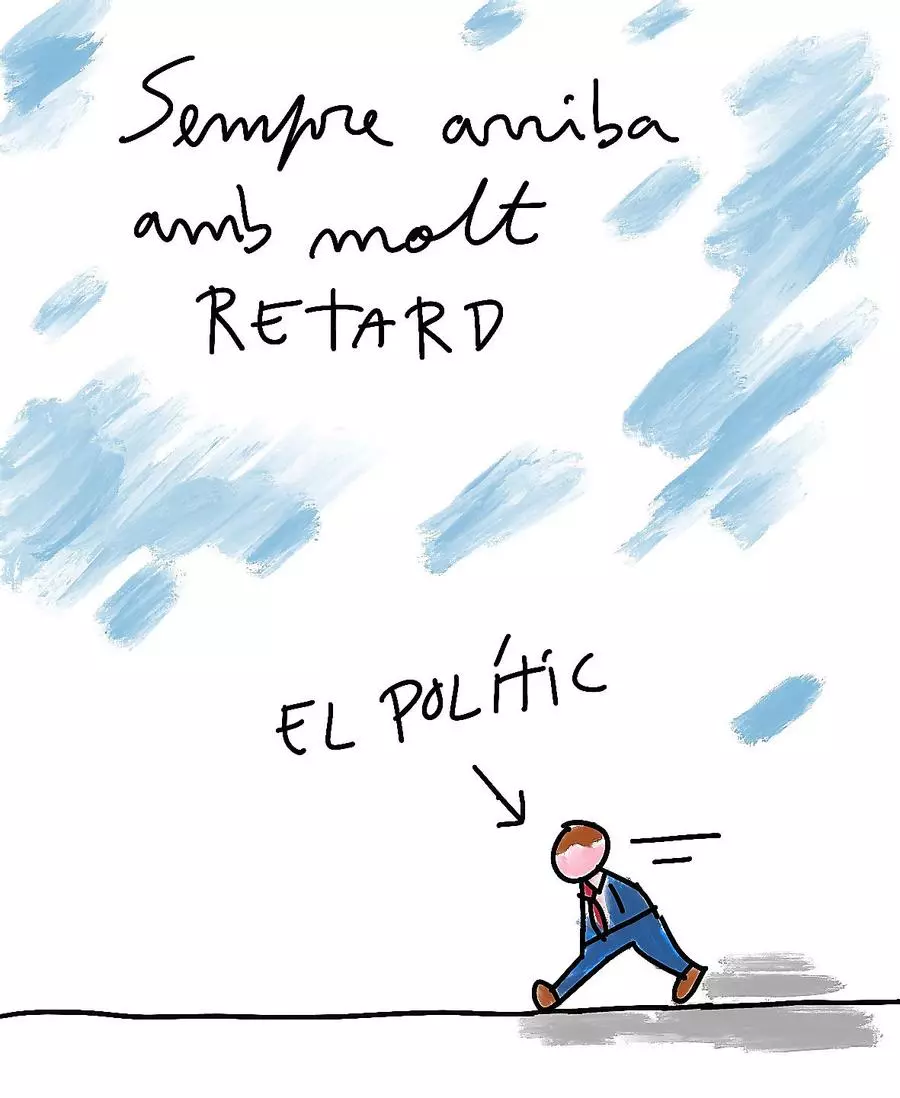 Sempre arriba
amb molt
RETARD
EL POLÍTIC